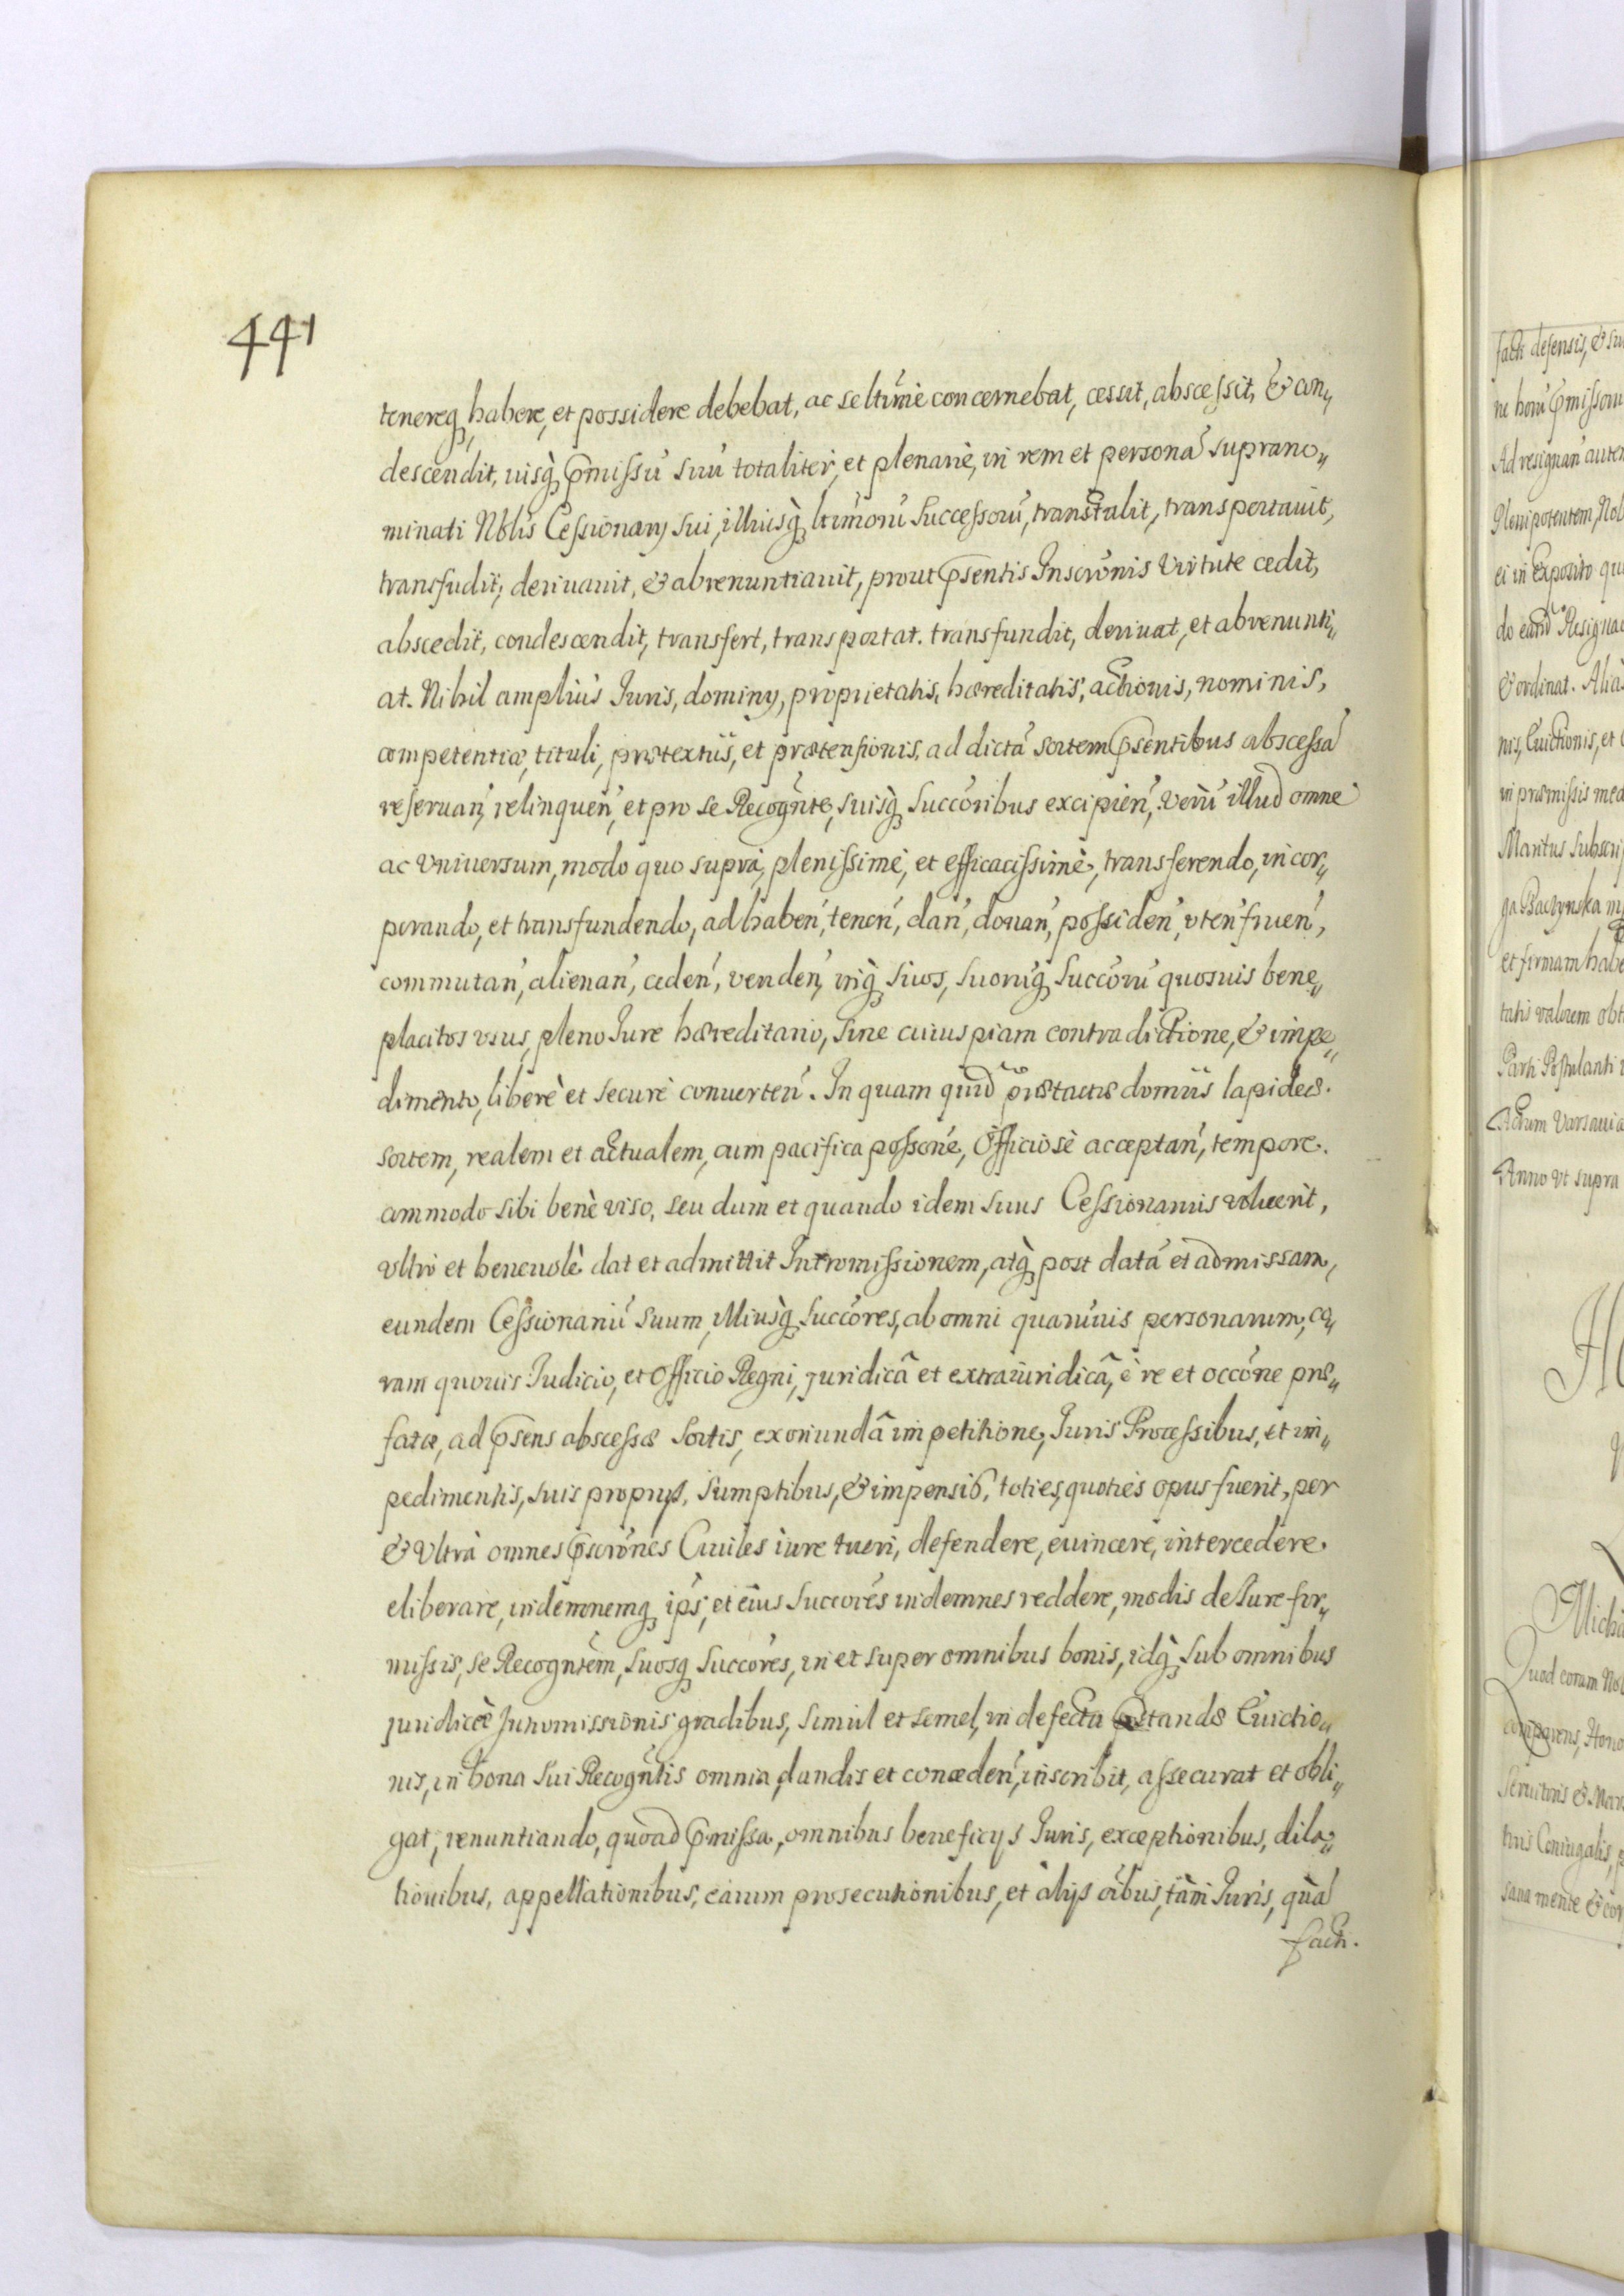 441
tenereq, habere, et possidere debebat, ac se ltime concernebat, cessit, abscessit, & con„
descendit, iusq, pmissu suu totaliter, et plenarie, in rem et persona suprano„
minati Nblis Cessionarij sui, illiusq, ltimoru Successoru, transtulit, transportauit,
transfudit, deriuauit, & abrenuntiauit, prout psentis Inscronis Virtute cedit,
abscedit, condescendit, transfert, transportat. transfundit, deriuat, et abrenunti„
at. Nihil amplius Juris, dominij, proprietatis, hæreditatis, actionis, nominis,
competentiæ, tituli, prætextus, et prætensionis, ad dicta sortem psentibus abscessa
reseruan, relinquen, et pro se Recognte, suisq, succoribus excipien, Veru illud omne
ac Vniuersum, modo quo supra, plenissime, et efficacissime, transferendo, incor„
porando, et transfundendo, ad haben, tenen, dan, donan, possiden, vten fruen,
commutan, alienan, ceden, venden, inq, suos, suoruq, Succoru quosuis bene„
placitos vsus, pleno Jure hæreditario, sine cuiuspiam contradictione, & impe„
dimento, libere et secure conuerten. In quam quid prætactæ domus lapideæ.
sortem, realem et actualem, cum pacifica possone, Officiose acceptan, tempore.
commodo sibi bene viso, seu dum et quando idem suus Cessionarius voluerit,
vltro et beneuole dat et admittit Intromissionem, atq, post data et admissam,
eundem Cessionariu suum, illiusq, succores, ab omni quaruuis personarum, co„
ram quouis Judicio, et Officio Regni, juridica et extraiuridica, e re et occone præ„
fatæ, ad psens abscessæ sortis, exoriunda impetitione, Juris Processibus, et im„
pedimentis, suis proprijs, sumptibus, & impensis, toties, quoties opus fuerit, per
& Vltra omnes pscrones Ciuiles iure tueri, defendere, euincere, intercedere.
eliberare, indemnemq, ips, et eius Succores indemnes reddere, modis de Jure for„
missis, se Recogntem, suosq, succores, in et super omnibus bonis, idq, sub omnibus
juridicæ Intromissionis gradibus, simul et semel, in defectu pstandæ Euictio„
nis, in bona sui Recogntis omnia, dandis et conceden, inscribit, assecurat et obli„
gat, renuntiando, quoad pmissa, omnibus beneficijs Juris, exceptionibus, dila„
tionibus, appellationibus, earum prosecutionibus, et alijs oibus, tam Juris, qua
facti.
facti defensis, & su
Ad resignan autem
Plenipotentem, Nob
ei in Exposito qu
& ordinat. Alia
nis, Euictionis, et
in præmissis med
Maritus subscri
et firmam habe
tatis valorem obt
Parti Postulanti
Actum Varsauia
Anno vt supra
Micha
Quod coram Nob
comparens, Hono
seruitoris & Mar
tius Coniugalis,
sana mente & cor